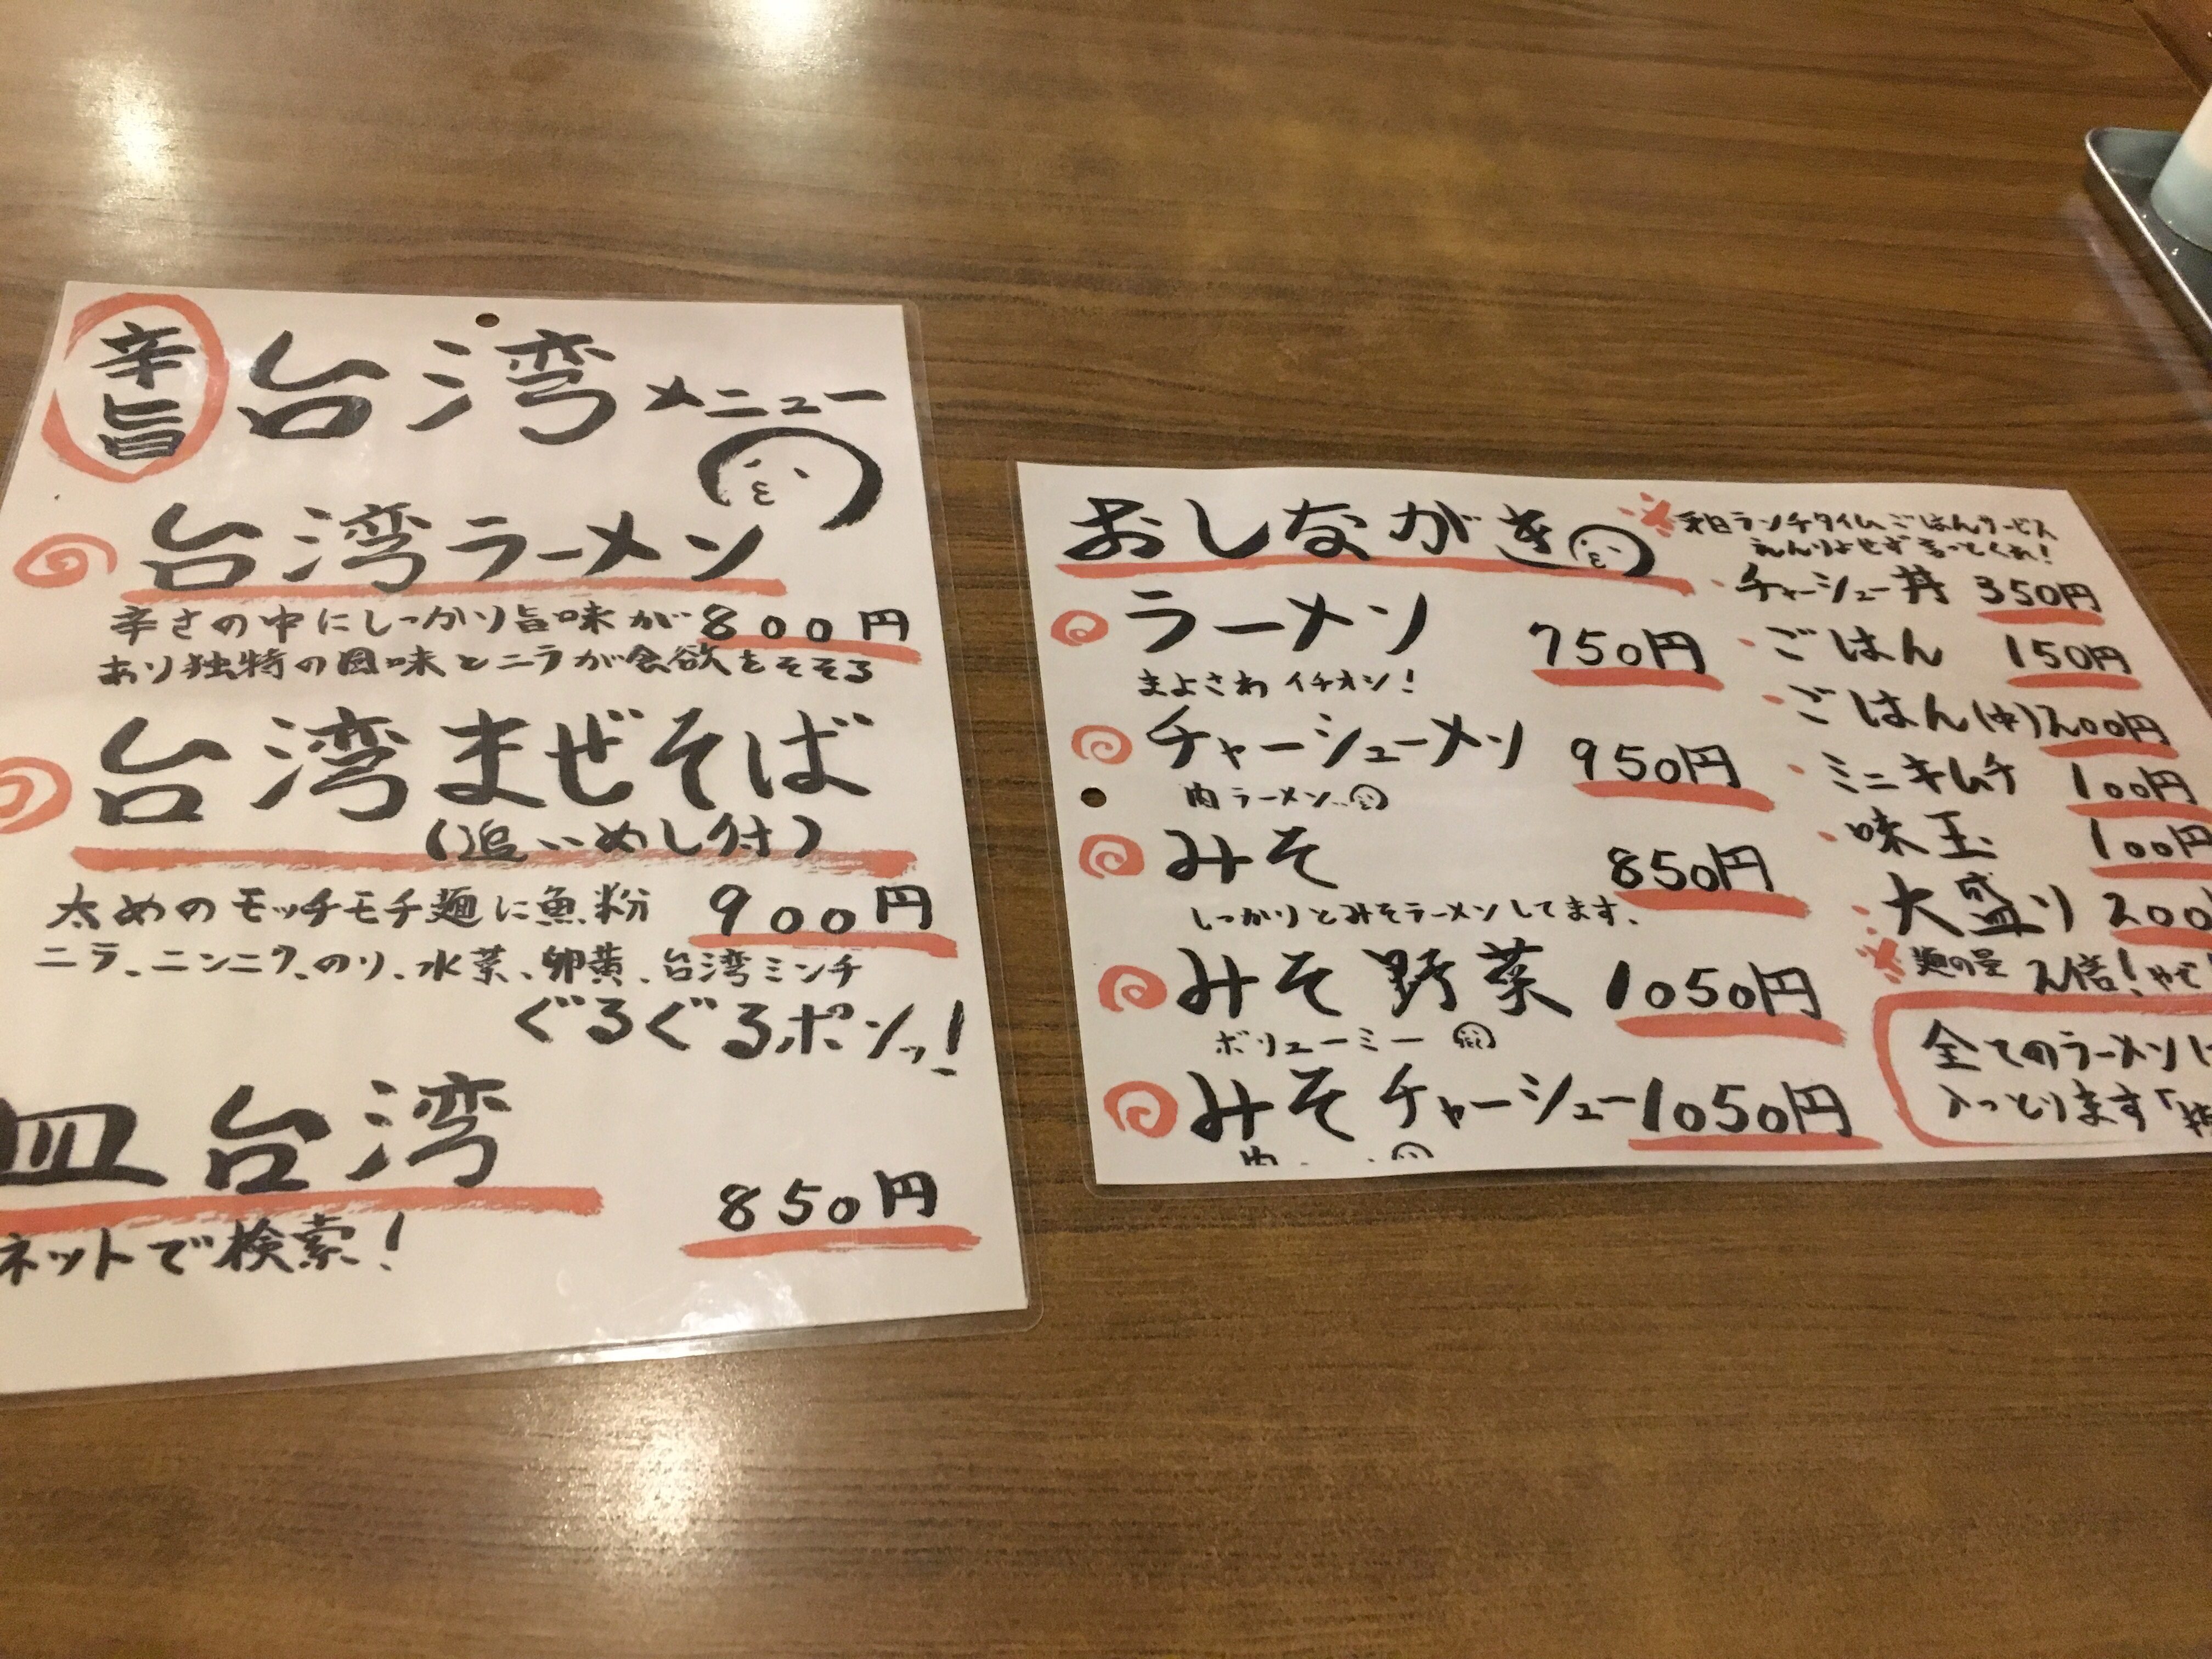 辛旨 台湾メニュー
台湾ラーメン
辛さの中にしっかり旨味が 800円
あり独特の風味とニラが食欲をそそる
台湾まぜそば
(追いめし付)
太めのモッチモチ麺に魚粉 900円
ニラ、ニンニク、のり、水菜、卵黄、台湾ミンチ
ぐるぐるポンッ!
皿台湾
850円
ネットで検索!
おしながき
ラーメン 750円
まよさわ イチオシ!
チャーシューメン 950円
肉ラーメン...
みそ 850円
しっかりとみそラーメンしてます。
みそ野菜 1050円
ボリューミー
みそチャーシュー 1050円
肉
※平日ランチタイムごはんサービス
えんりょせず言ってくれ!
・チャーシュー丼 350円
・ごはん 150円
・ごはん(中) 200円
・ミニキムチ 100円
・味玉 100円
・大盛り 200
※麺の量 2倍!やで!
全てのラーメンに
入っとります「